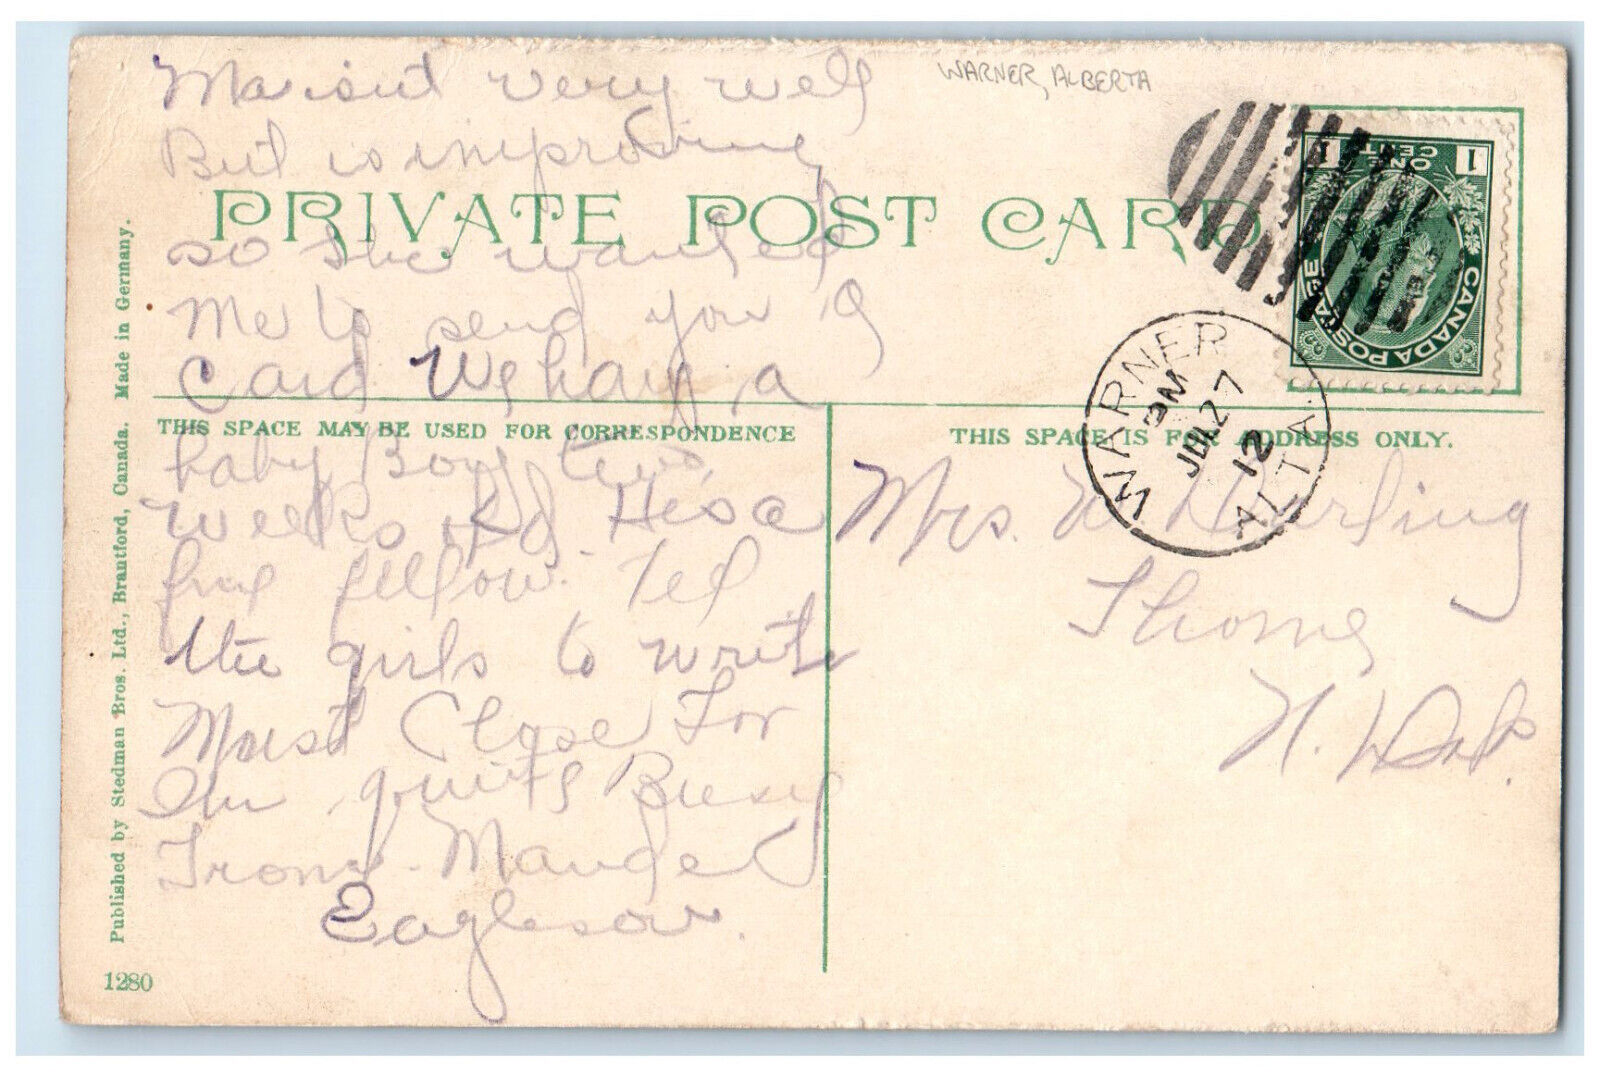 WARNER, ALBERTA
Ma isnt very well
But is improving
PRIVATE POST CARD
so she wanted
me to send you a
Card We have a
THIS SPACE MAY BE USED FOR CORRESPONDENCE
baby Boy two
weeks old Hes a
fine fellow. Tel
the girls to write
Must Close For
Im quite Buesy
From Maude
Eagleson.
THIS SPACE IS FOR ADDRESS ONLY.
Mrs. W Darling
Thorne
N. Dak.
CANADA POSTAGE
ONE CENT
1 1
WARNER ALTA.
PM
JUL 27
12
Published by Stedman Bros. Ltd., Brantford, Canada. Made in Germany.
1280